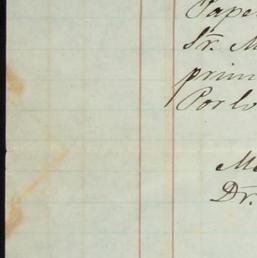 Pape
Sr. M
prin
Por lo
M
Dr.